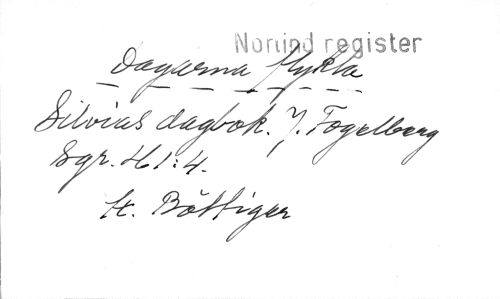 Norlind register
Dagarna flykta
Silvias dagbok. J. Fogelberg
Sgr. 461:4.
tt. Böttiger